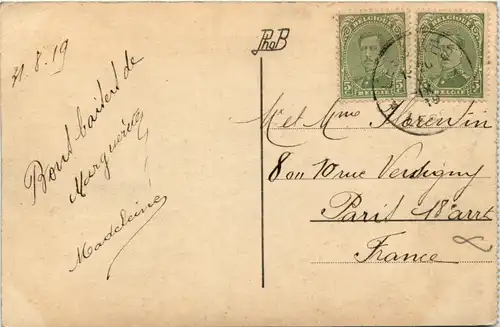 31.8.19
Bons baisers de
Marguerite
Madeleine
PhoB
BELGIQUE
5 5
BELGIË
BELGIQUE
5 5
BELGIË
M. et Mme Florentin
8 ou 10 rue Verdigny
Paris 18 arrt
France